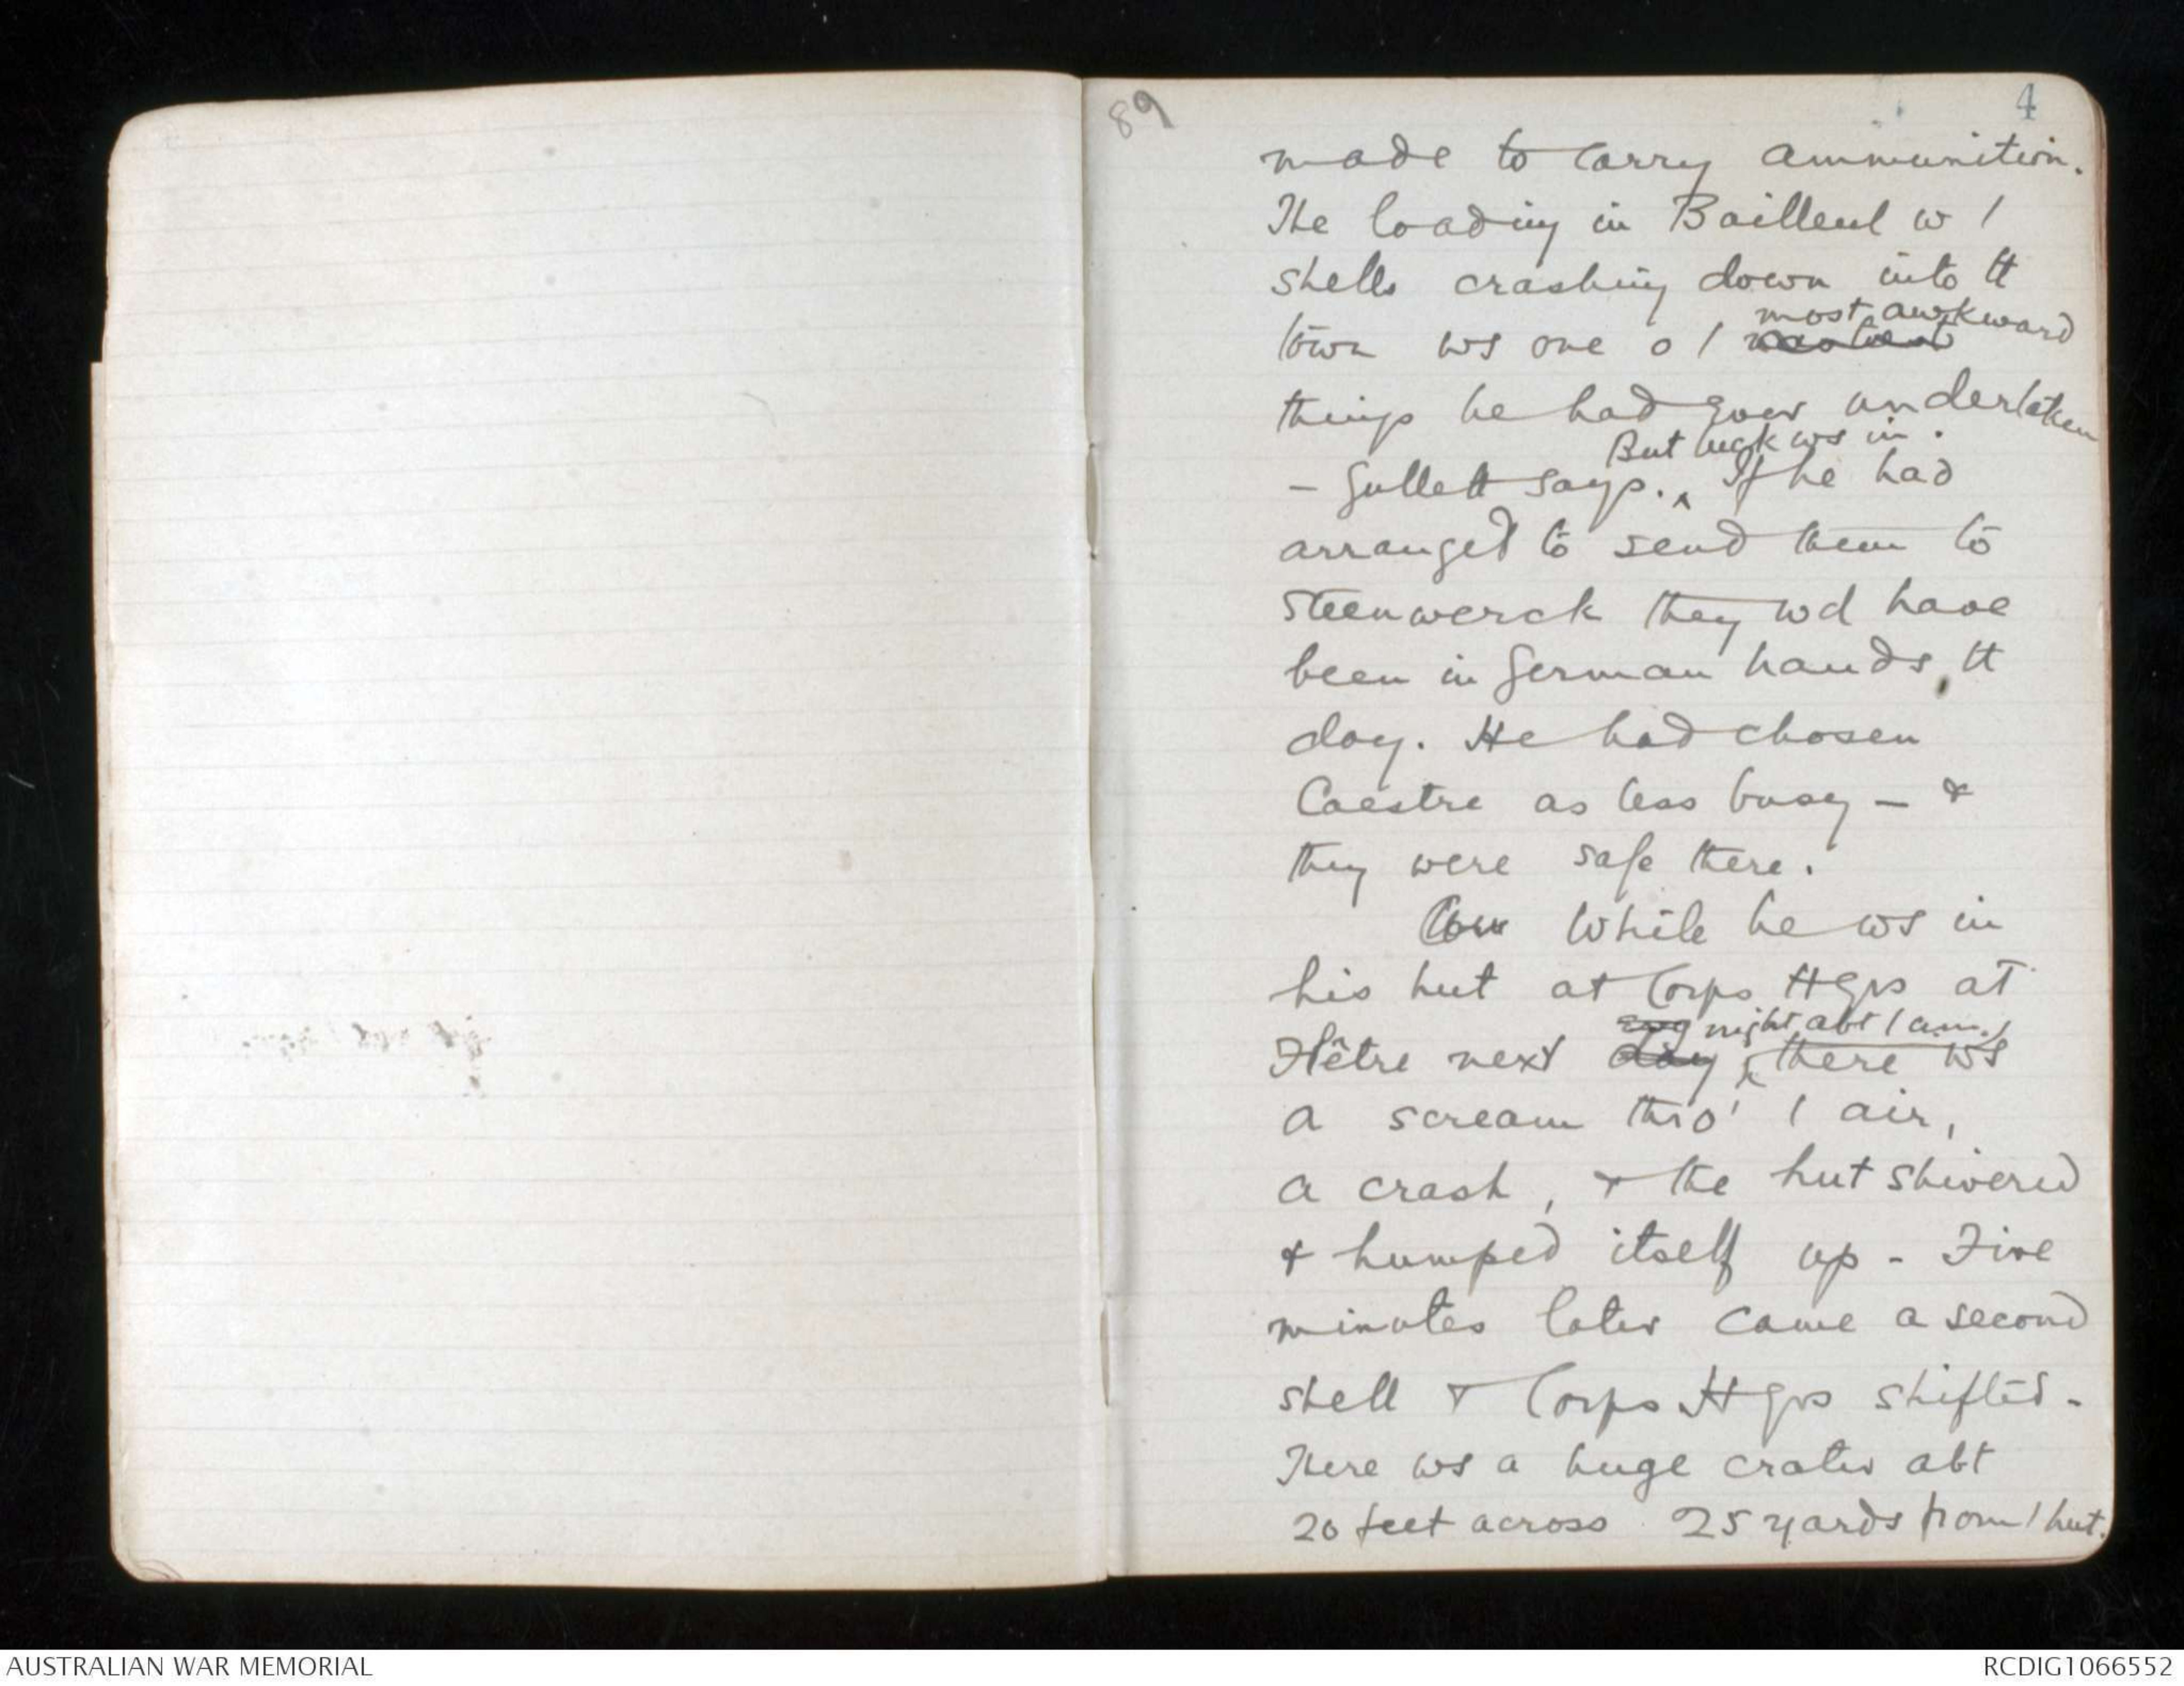 89
4
made to carry ammunition.
The loading in Bailleul w /
shells crashing down into tt
most awkward
town ws one o /
things he had ever undertaken
But luck ws in.
– Gullett says. ^ If he had
arranged to send them to
Steenwerck they wd have
been in German hands tt
day. He had chosen
Caestre as less busy – &
they were safe there.
While he ws in
his hut at Corps Hqrs at
night abt 1 am,
Flêtre next day ^ there ws
a scream thro' / air,
a crash, & the hut shivered
& humped itself up – Five
minutes later came a second
shell & Corps Hqrs shifted –
There ws a huge crater abt
20 feet across 25 yards from / hut.
AUSTRALIAN WAR MEMORIAL
RCDIG1066552